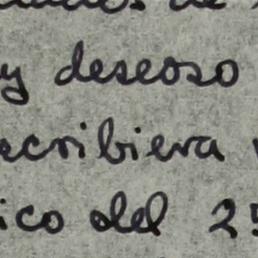 y deseoso
scribiera
ico del 25